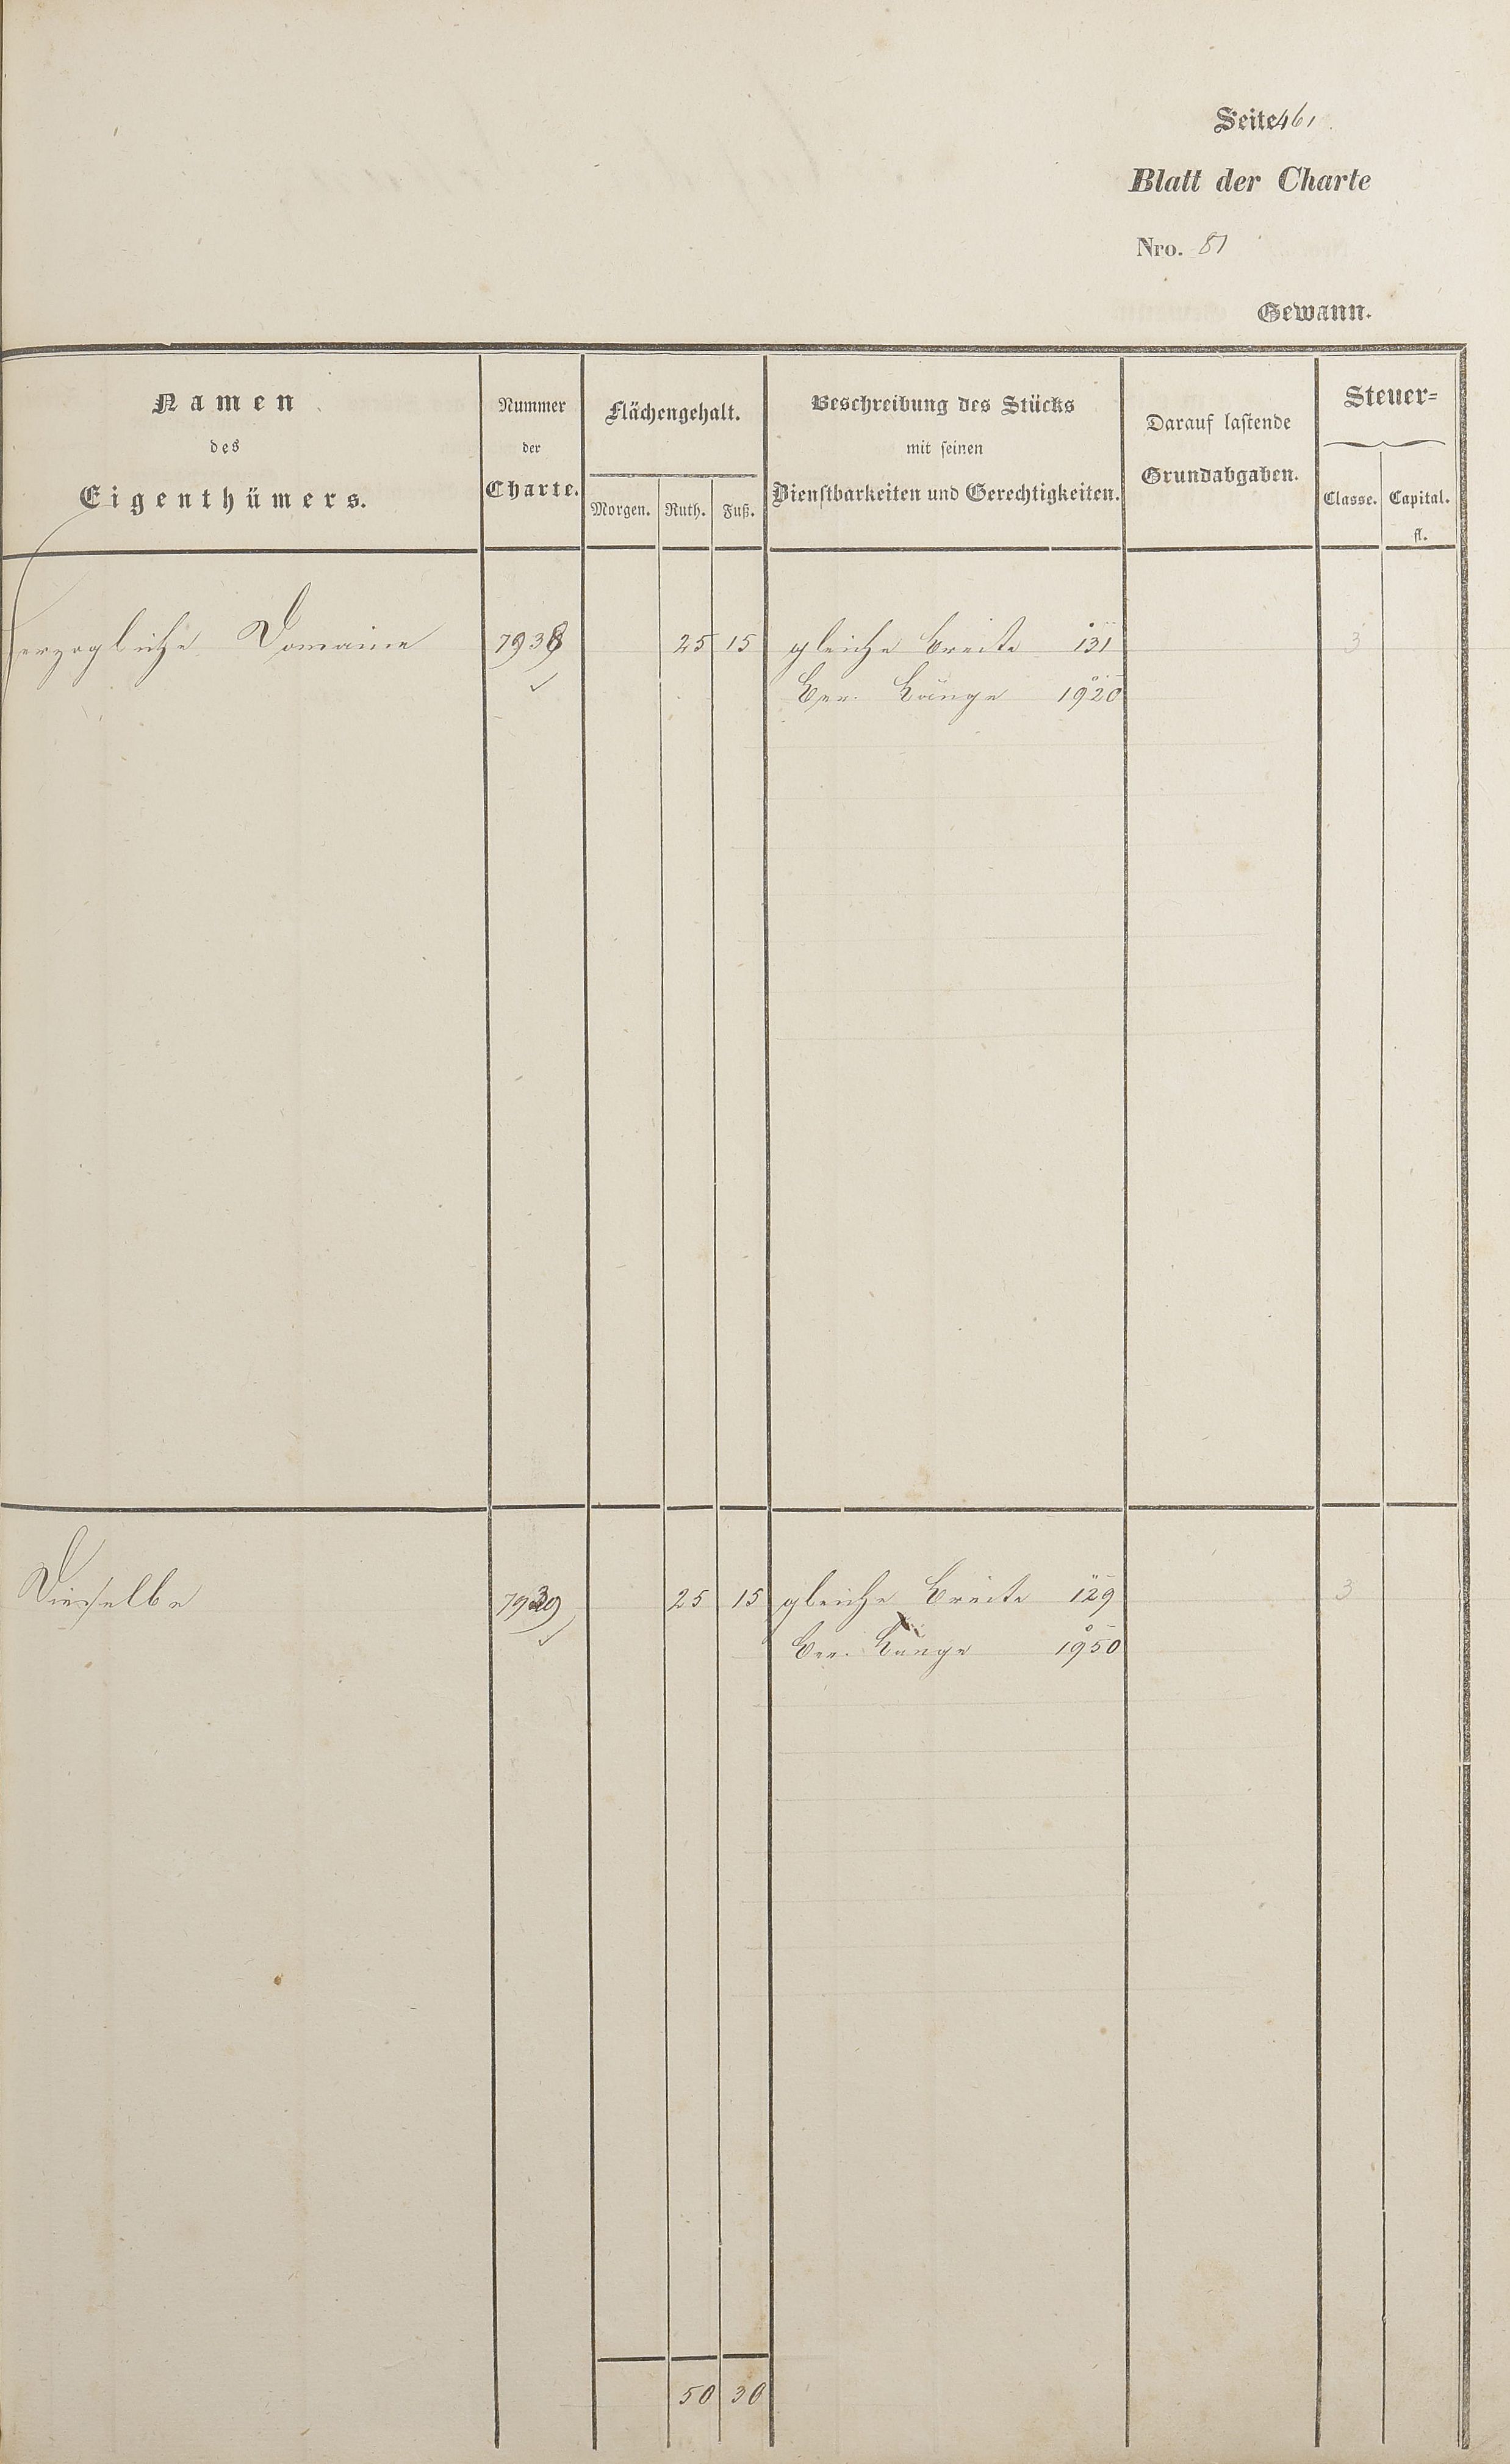 Seite 461
Blatt der Charte
Nro. 81
Gewann.
Namen
des
Eigenthümers.
Nummer
der
Charte.
Flächengehalt.
Morgen. Ruth. Fuß.
Beschreibung des Stücks
mit seinen
Dienstbarkeiten und Gerechtigkeiten.
Darauf lastende
Grundabgaben.
Steuer-
Classe. Capital.
fl.
Herzogliche Domaine 7938 25 15 gleiche Breite 131 3
Ber. Länge 1920
Dieselbe 7939 25 15 gleiche Breite 129 3
Ber. Länge 1950
50 30